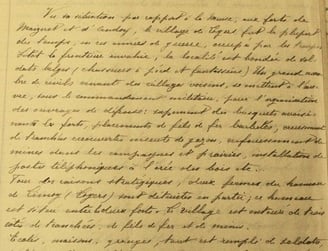 Vu sa situation par rapport à la Meuse, aux forts de
Maizeret et d'Andoy, le village de Lives fut la plupart
du temps, en ces années de guerre, occupé par les troupes
la localité est bondée de sol-
dats belges (chasseurs à pied et fantassins). Un grand nom-
bre de civils venant des villages voisins, se mettent à l'œu-
vre, sous le commandement militaire, pour l'organisation
des ouvrages de défense: des bosquets avoisi-
nants les forts, placements de fils de fer barbelés, creusement
de tranchées recouvertes ensuite de gazon, enfouissement de
mines dans les campagnes et prairies, installation de
postes téléphoniques à l'orée des bois etc.
Pour des raisons stratégiques, deux fermes du hameau
de sont détruites en partie; ce hameau
est situé entre les deux forts. Le village est entouré de trois
côtés de tranchées, de fils de fer et de mines.
Écoles, maisons, granges, tout est rempli de soldats